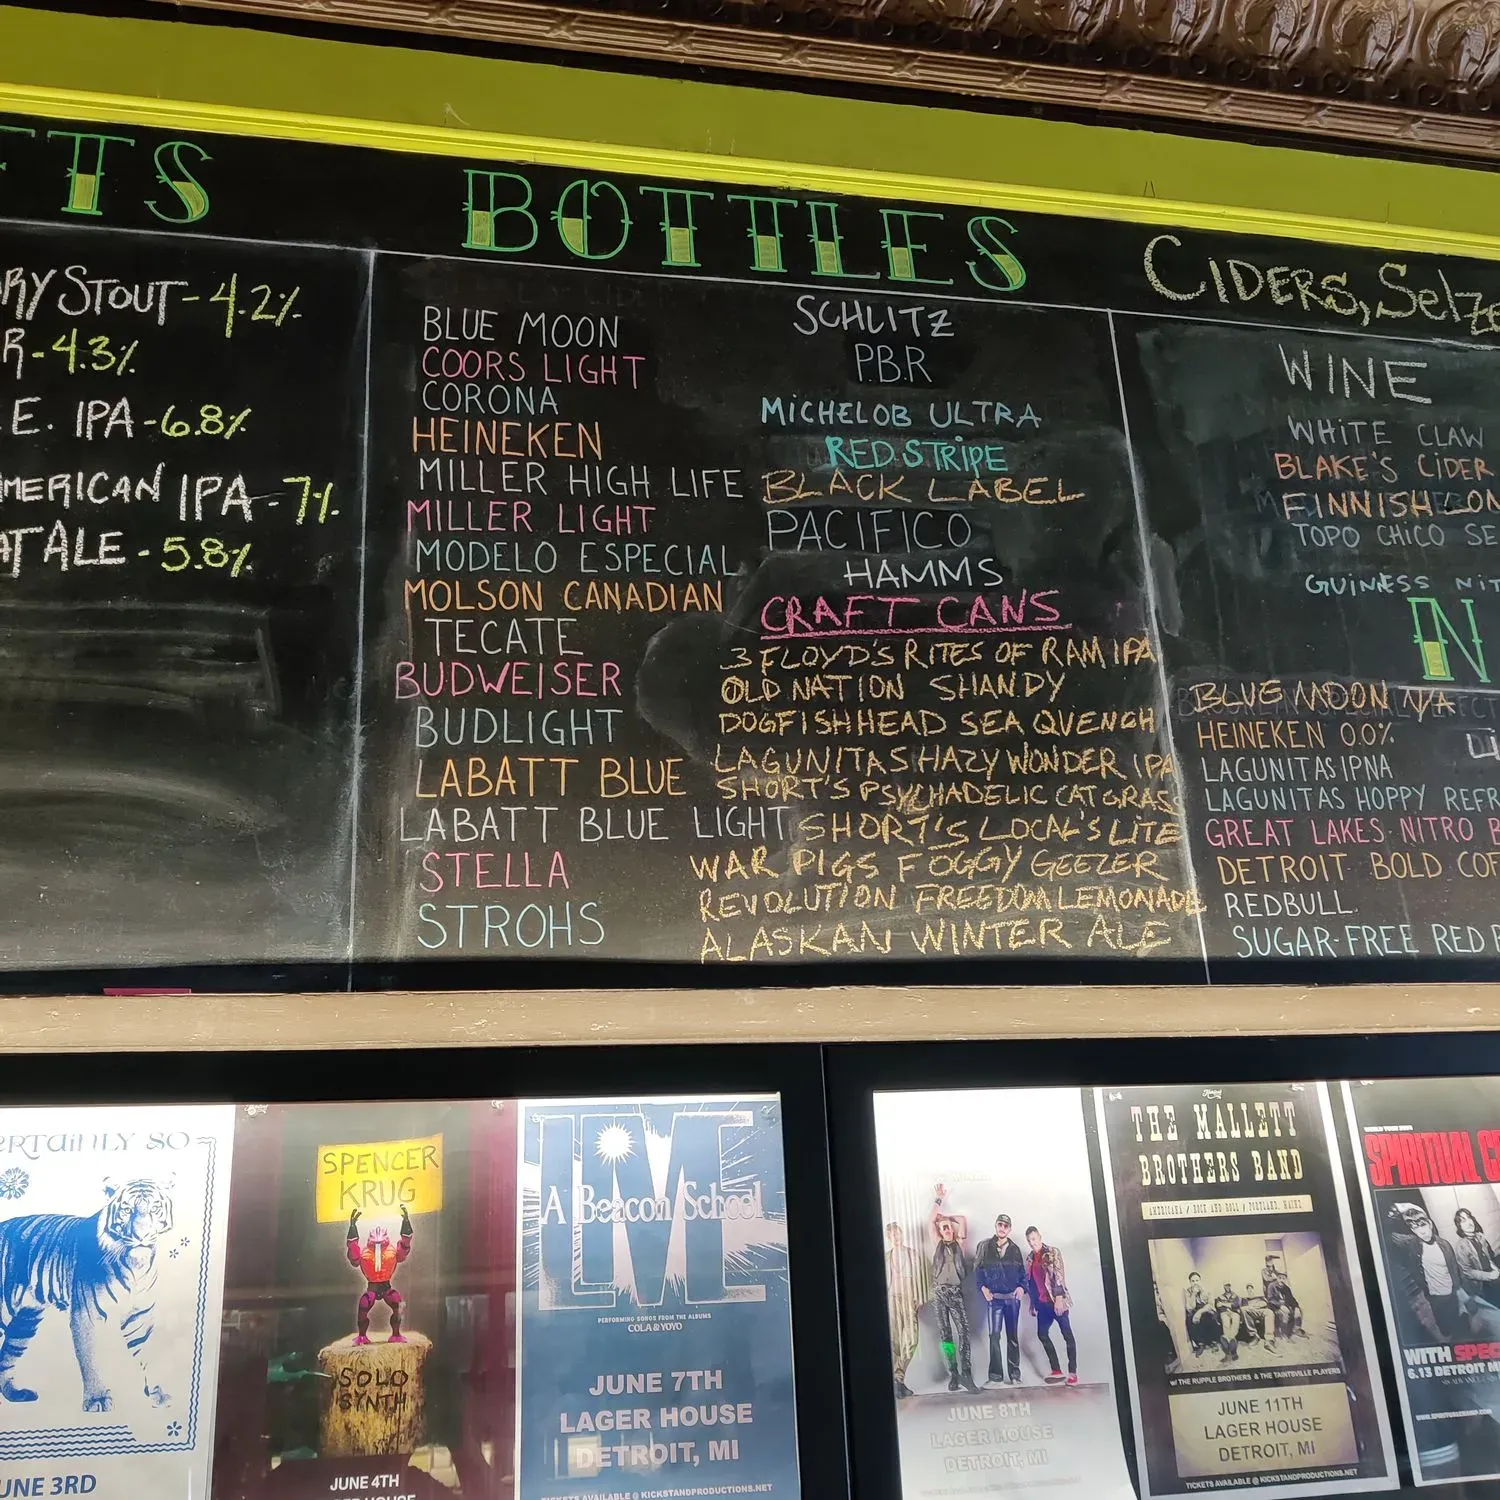 TS
BOTTLES
CIDERS, Selze
RY STOUT - 4.2%
R - 4.3%
E. IPA - 6.8%
MERICAN IPA - 7%
AT ALE - 5.8%
BLUE MOON
COORS LIGHT
CORONA
HEINEKEN
MILLER HIGH LIFE
MILLER LIGHT
MODELO ESPECIAL
MOLSON CANADIAN
TECATE
BUDWEISER
BUDLIGHT
LABATT BLUE
LABATT BLUE LIGHT
STELLA
STROHS
SCHLITZ
P.B.R
MICHELOB ULTRA
RED STRIPE
BLACK LABEL
PACIFICO
HAMMS
CRAFT CANS
3 FLOYD'S RITES OF RAM IPA
OLD NATION SHANDY
DOGFISHHEAD SEA QVENCH
LAGUNITAS HAZY WONDER IPA
SHORT'S PSYCHADELIC CAT GRASS
SHORT'S LOCAL'S LITE
WAR PIGS FOGGY GEEZER
REVOLUTION FREEDOM LEMONADE
ALASKAN WINTER ALE
WINE
WHITE CLAW
BLAKE'S CIDER
FINNISH LON
TOPO CHICO SE
GUINNESS NIT
N
BLUE MOON N/A
HEINEKEN 0.0%
LAGUNITAS IPNA
LAGUNITAS HOPPY REFR
GREAT LAKES NITRO B
DETROIT BOLD COF
REDBULL
SUGAR-FREE RED B
ERTAINLY SO
UNE 3RD
SPENCER
KRUG
SOLO
SYNTH
JUNE 4TH
LME
A Beacon School
PERFORMING SONGS FROM THE ALBUMS
COLA & YOYO
JUNE 7TH
LAGER HOUSE
DETROIT, MI
TICKETS AVAILABLE @ KICKSTANDPRODUCTIONS.NET
JUNE 8TH
LAGER HOUSE
DETROIT, MI
THE MALLETT
BROTHERS BAND
AMERICANA / ROCK AND ROLL / PORTLAND, MAINE
W/ THE RUPPLE BROTHERS & THE TAINTSVILLE PLAYERS
JUNE 11TH
LAGER HOUSE
DETROIT, MI
TICKETS AVAILABLE @ KICKSTANDPRODUCTIONS.NET
SPIRITUAL C
WITH SPEC
6.13 DETROIT M